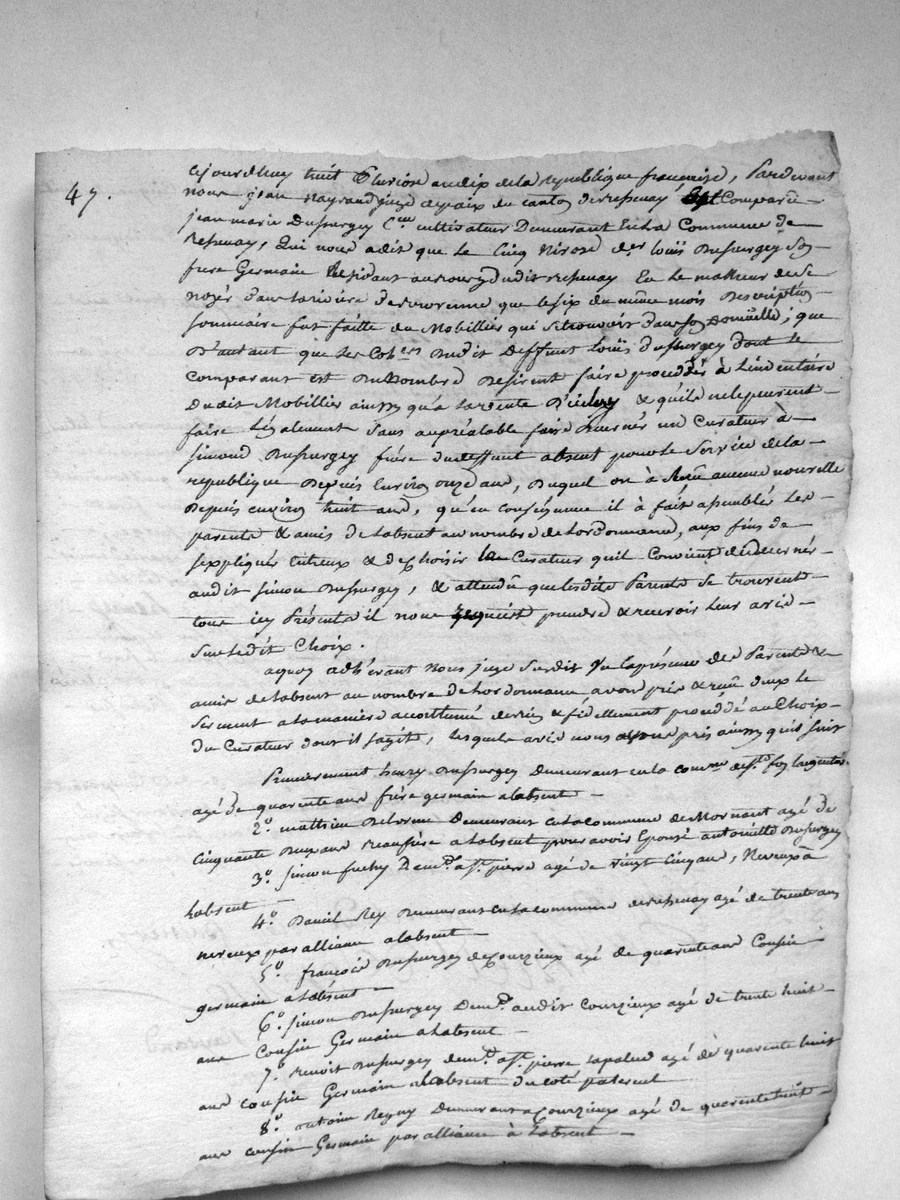 47.
cejourdhuy huit Pluviose an dix de la republique francaise, Pardevant
nous jean Rayrand juge depaix du canton de Bessenay, Est Comparu
jean marie Dussurgey C.en cultivateur Demeurant En La Commune de
Bessenay, Qui nous adit que le Cinq Nivose der. louis Dussurgey Son
frere Germain Residant au bourg dudit Bessenay Eu le malheur de Se
noyer dans la riviere que le six du même mois Description
sommaire fut faitte du Mobillier qui Setrouvoit dans son Domicille; que
D'autant que les Cohers Dudit Deffunt Louis Dussurgey dont le
Comparant est Du Nombre Desirent faire proceder à Linventaire
Dudit Mobillier ainsy qu'a la vente D'icluy & quils nelepeuvent
faire Légalement Sans au préalable faire Décerner un Curateur à
Simond Dussurgey frere du deffunt absent pour le Service de la
republique Depuis Environ onze ans, Duquel on à aucune nouvelle
Depuis environ huit ans, qu'en conséquence il à fait assemblés Les
parents & amis de Labsent au nombre de Lordonnance, aux fins de
sexpliquer entreux & de Choisir Le Curateur quil Convient dedecerner
audit Simon Dussurgey, & attendu que lesdits Parents Se trouvent
tous icy Présents il nous requiert prendre & recevoir leur avis
Sur ledit Choix.
aquoy adhérant Nous juge Susdit en la présence des Parents &
amis de Labsent au nombre de Lordonnance avons pris & reçu deux le
Serment a la maniere accoutumé de bien & fidellement procédé au Choix
du Curateur dont il sagite, lesquels avis nous avons pris ainsy quil suit
Premierement henry Dussurgey Demeurant en la comm.ne de S.te foy Largentiere
agé de quarente ans frère germain alabsent
2.o mathieu Delorme Demeurant en la commune de Mornant agé de
Cinquante Deux ans Beaufrere a labsent pour avoir Epousé antoinette Dussurgey
3.o Simon fuchy Dem.t a S.t pierre agé de vingt Cinq ans, Neveux à
Labsent
4.o Daniel Rey Demeurant en la commune de Bessenay agé de trente ans
neveux par alliance alabsent
5.o françois Dussurgey de Courzieux agé de quarente ans Cousin
germain a labsent
6.o Simon Dussurgey Dem.t audit Courzieux agé de trente huit
ans Cousin Germain a Labsent
7.o Benoit Dussurgey dem.t a S.t pierre lapalud agé de quarente huit
ans cousin Germain a labsent du coté paternel
8.o antoine Reyny Demeurant a Courzieux agé de quarente huit
ans cousin Germain par alliance à Labsent